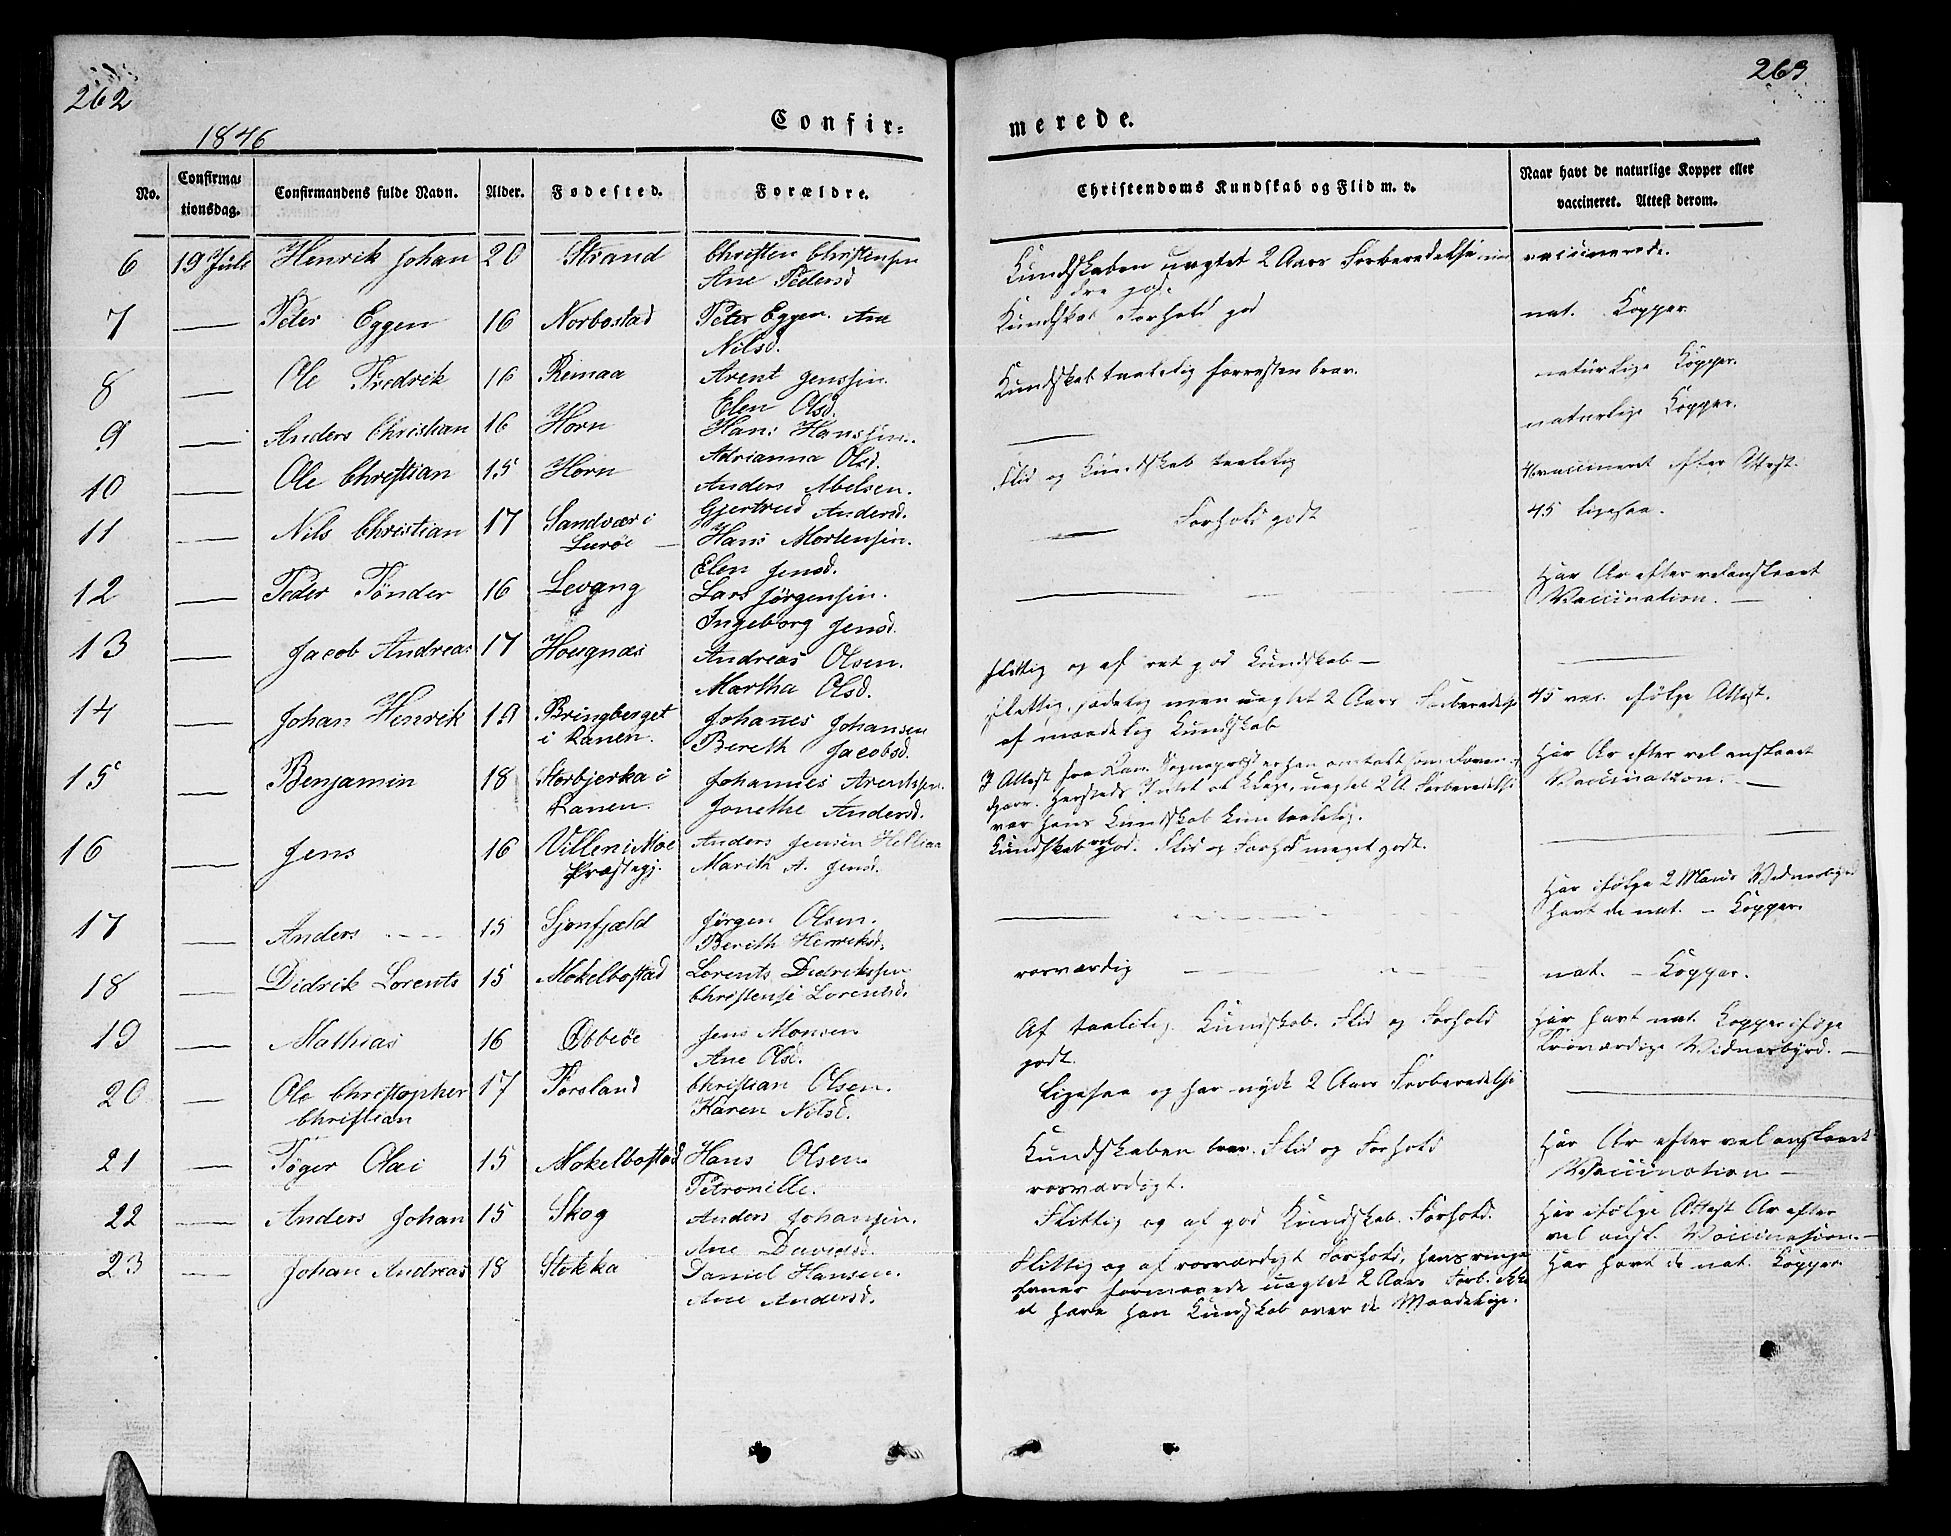 262
263
1846
Confir-
merede.
No.
Confirma-
tionsdag.
Confirmandens fulde Navn.
Alder.
Fødested.
Forældre.
Christendoms Kundskab og Flid m. v.
Naar havt de naturlige Kopper eller
vaccineret. Attest derom.
6 19 Juli Henrik Johan 20 Strand Christen Christensen
Ane Pedersd
Kundskaben uagtet 2 Aars Forberedelse min
dre god.
vaccinerede.
7 — Peter Eggen 16 Norbostad Peter Eggen. Ane
Nilsd.
Kundskab Forhold god
nat. Kopper
8 — Ole Fredrik 16 Remaa Arent Jenssen.
Elen Olsd.
Kundskab taalelig forresten brav.
naturlige Kopper.
9 — Anders Christian 16 Horn Hans Hanssen.
Adrianna Olsd.
—
naturlige Kopper.
10 — Ole Christian 15 Horn Anders Abelsen.
Gjertrud Andersd.
Flid og Kundskab taalelig
vaccineret efter Attest.
11 — Nils Christian 17 Sandvær i
Lurøe — Hans Mortensen.
Elen Jensd.
— Forhold godt
45 ligesaa.
12 — Peder Tønder 16 Levang Lars Jørgensen.
Ingeborg Jensd.
—
Har Ar efter vel anstaaet
Vaccination. —
13 — Jacob Andreas 17 Hougnæs Andreas Olsen.
Martha Olsd.
flittig og af ret god Kundskab —
—
14 — Johan Henrik 19 Bringberget
i Ranen. Johanes Johansen
Bereth Jacobsd.
flittig, sædelig men uagtet 2 Aars Forberedelse
af maadelig Kundskab
45 vac. ifølge Attest.
15 — Benjamin 18 Storbjerka i
Ranen. Johannes Arentssen.
Jonethe Andersd.
I Attest fra Sognepræst er han omtalt som
uagtet 2 A Forberedelse
var hans Kundskab kun taalelig.
Har Ar efter vel anstaaet
Vaccination. —
16 — Jens 16 Villen i Moe
Præstegj. Anders Jensen
Marith A. Jensd.
Kundskab vel god. Flid og Forhold meget godt.
—
17 — Anders 15 Sjonfjæld Jørgen Olsen.
Berith Henriksd.
—
Har ifølge 2 Mænds Vidnesbyrd
havt de nat. — Kopper.
18 — Didrik Lorents 15 Mokelbostad Lorents Didrikssen
Christense Lorentsd.
rosværdig — —
nat. — Kopper.
19 — Mathias 16 Øbbeøe Jens Monsen
Ane Olsd.
Af taalelig Kundskab. Flid og Forhold
godt.
Har havt nat. Kopper ifølge
troværdige Vidnesbyrd. —
20 — Ole Christopher
Christian 17 Forsland Christian Olsen.
Karen Nilsd.
Ligesaa og har nydt 2 Aars Forberedelse
—
21 — Tøger Olai 15 Mokelbostad Hans Olsen
Petronille.
Kundskaben brav. Flid og Forhold
rosværdigt.
Har Ar efter vel anstaaet
Vaccination —
22 — Anders Johan 15 Skog Anders Johansen.
Ane Davidsd.
Flittig og af god Kundskab. Forhold.
Har ifølge Attest Ar efter
vel anst. Vaccination. —
23 — Johan Andreas 18 Stokka Daniel Hansen.
Ane Andersd.
Flittig og af rosværdigt Forhold, hans ringe
Evner formaaede uagtet 2 Aars Forb. ikke
at hæve hans Kundskab over de Maadelige.
Har havt de nat. Kopper